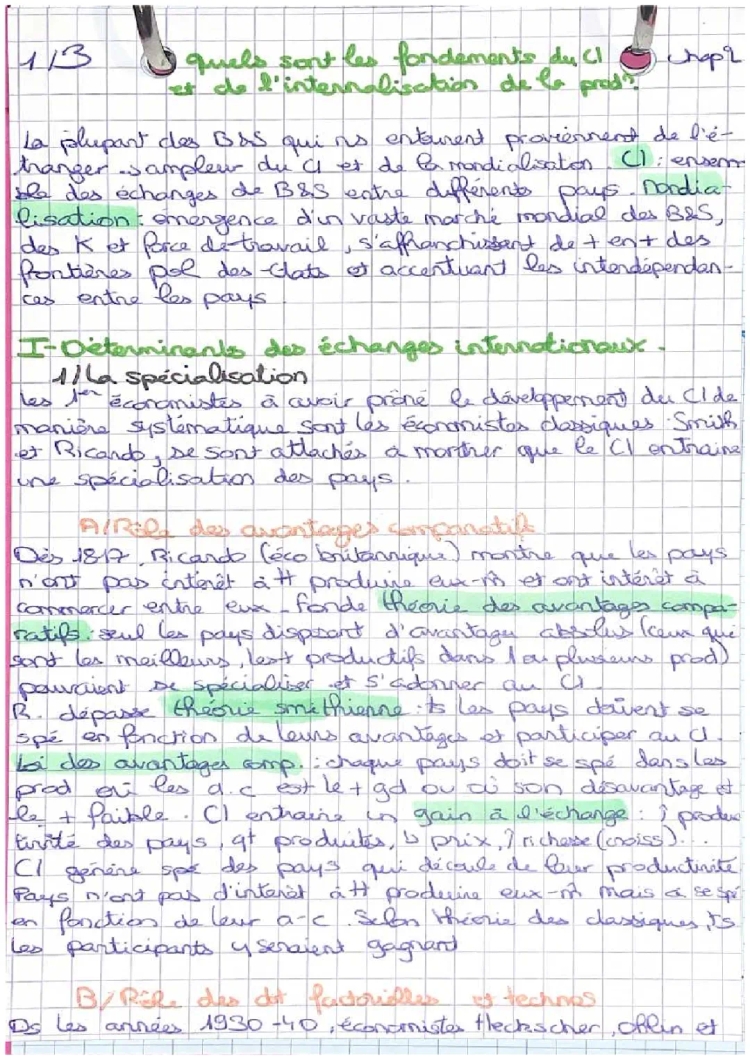 1/3 quels sont les fondements du CI chap 2
et de l'internalisation de la prod?
La plupart des B&S qui ns entourent proviennent de l'é-
tranger → ampleur du CI et de la mondialisation. CI : ensem
ble des échanges de B&S entre différents pays. Mondia-
lisation : émergence d'un vaste marché mondial des B&S,
des K et force de travail, s'affranchissent de + en + des
frontières pol des états et accentuant les interdépendan-
ces entre les pays
I- Déterminants des échanges internationaux.
1/ La spécialisation
Les 1ers économistes à avoir prôné le développement du CI de
manière systématique sont les économistes classiques. Smith
et Ricardo, se sont attachés à montrer que le CI entraine
une spécialisation des pays.
A/ Rôle des avantages comparatifs
Dès 1817, Ricardo (éco britannique) montre que les pays
n'ont pas intérêt à tt produire eux-m̂ et ont intérêt à
commercer entre eux → fonde théorie des avantages compa-
ratifs : seul les pays disposant d'avantages absolus (ceux qui
sont les meilleurs, les + productifs dans 1 ou plusieurs prod)
pouvaient se spécialiser et s'adonner au CI.
R. dépasse théorie smithienne : ts les pays doivent se
spé en fonction de leurs avantages et participer au CI.
Loi des avantages comp. : chaque pays doit se spé dans les
prod où les a.c est le + gd ou où son désavantage est
le + faible. CI entraine un gain à l'échange : ↑ produc
tivité des pays, qt produites, ↓ prix, ↑ richesse (croiss)...
CI génère spé des pays qui découle de leur productivité
Pays n'ont pas d'intérêt à tt produire eux-m̂ mais à se spé
en fonction de leur a-c. Selon théorie des classiques, ts
les participants y seraient gagnant
B/ Rôle des dot factorielles et technos
Ds les années 1930-40, économistes Heckscher, Ohlin et